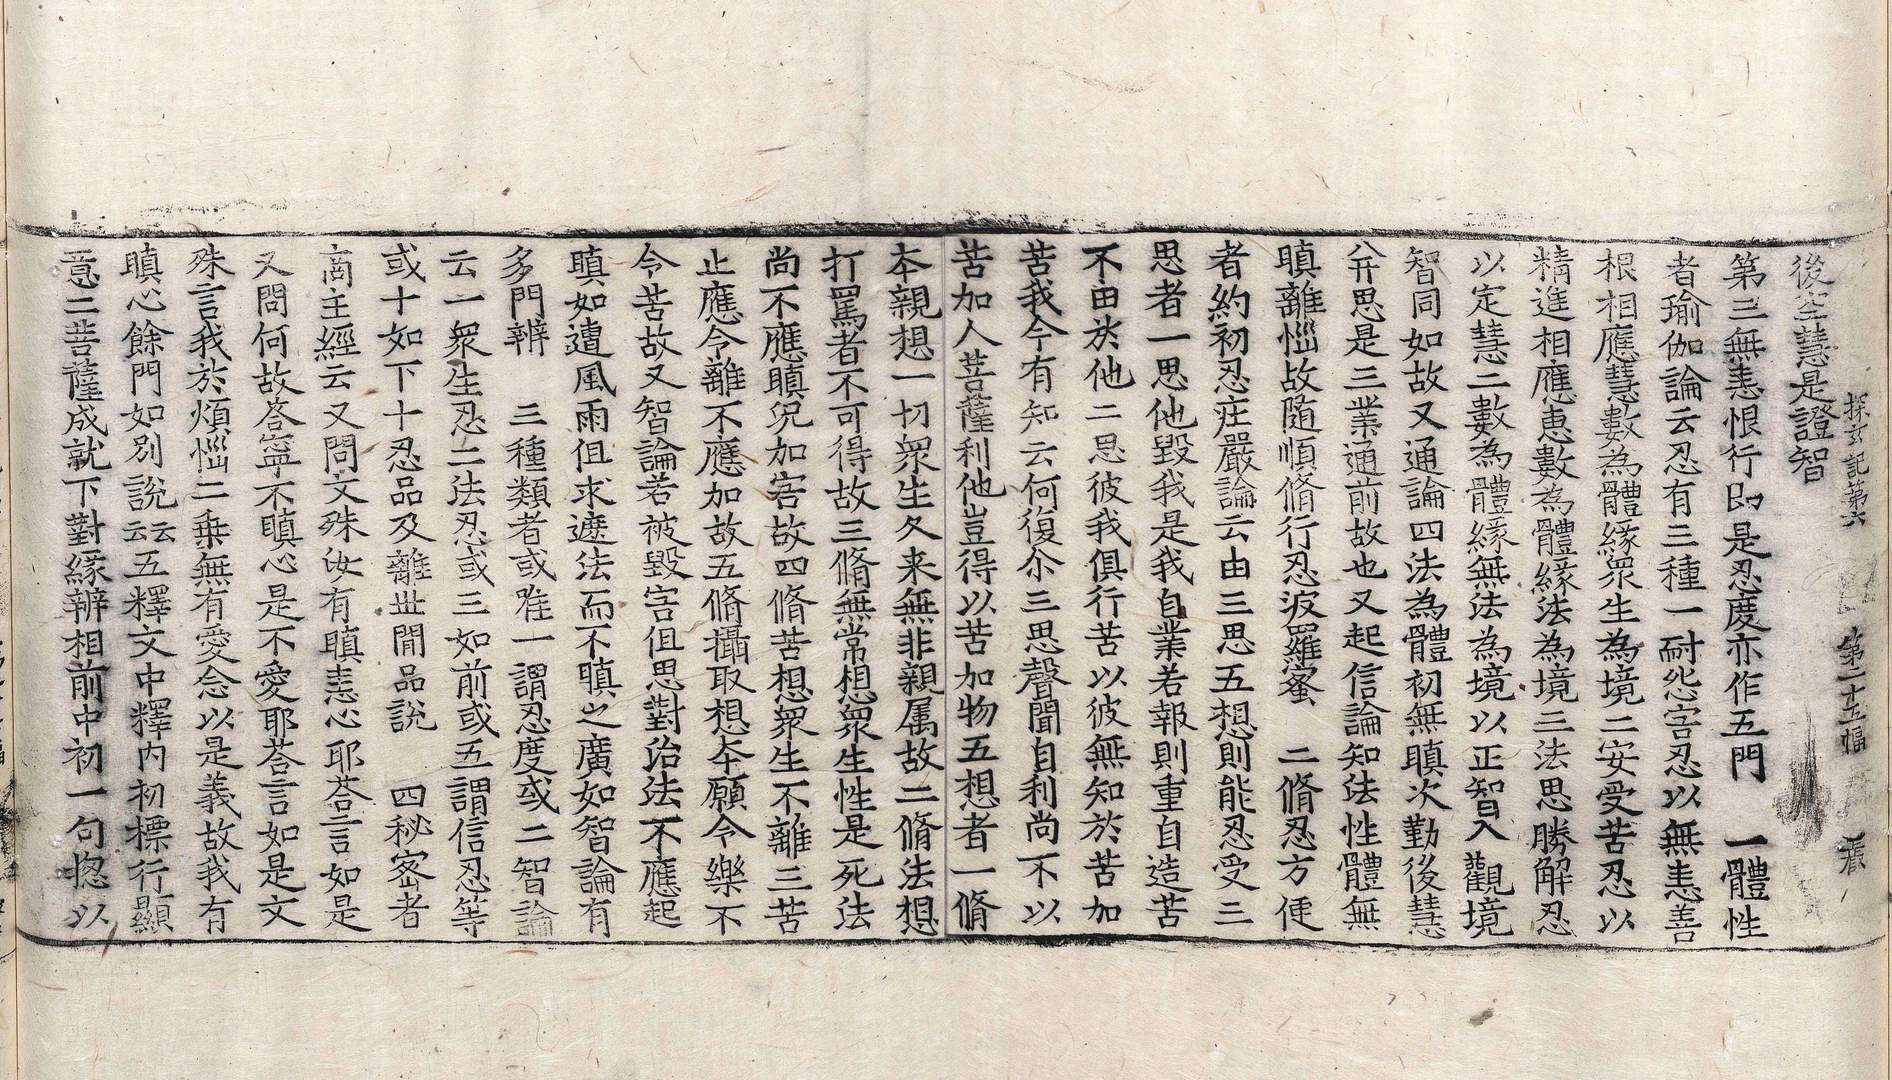 探玄記第六 第二十五幅
後空慧是證智
第三無恚恨行即是忍度亦作五門 一體性
者瑜伽論云忍有三種一耐怨害忍以無恚善
根相應慧數為體緣眾生為境二安受苦忍以
精進相應恵數為體緣法為境三法思勝解忍
以定慧二數為體緣無法為境以正智入觀境
智同如故又通論四法為體初無瞋次勤後慧
并思是三業通前故也又起信論知法性體無
瞋離惱故隨順脩行忍波羅蜜 二脩忍方便
者約初忍庄嚴論云由三思五想則能忍受三
思者一思他毀我是我自業若報則重自造苦
不由於他二思彼我俱行苦以彼無知於苦加
苦我今有知云何復尒三思聲聞自利尚不以
苦加人菩薩利他豈得以苦加物五想者一脩
本親想一切眾生久来無非親属故二脩法想
打罵者不可得故三脩無常想眾生性是死法
尚不應瞋況加害故四脩苦想眾生不離三苦
止應令離不應加故五脩攝取想本願令樂不
令苦故又智論若被毀害但思對治法不應起
瞋如遭風雨但求遮法而不瞋之廣如智論有
多門辨 三種類者或唯一謂忍度或二智論
云一眾生忍二法忍或三如前或五謂信忍等
或十如下十忍品及離世間品說 四秘密者
商主經云又問文殊汝有瞋恚心耶荅言如是
又問何故荅寧不瞋心是不愛耶荅言如是文
殊言我於煩惱二乗無有愛念以是義故我有
瞋心餘門如別說云云五釋文中釋内初標行顯
意二菩薩成就下對緣辨相前中初一句揔以